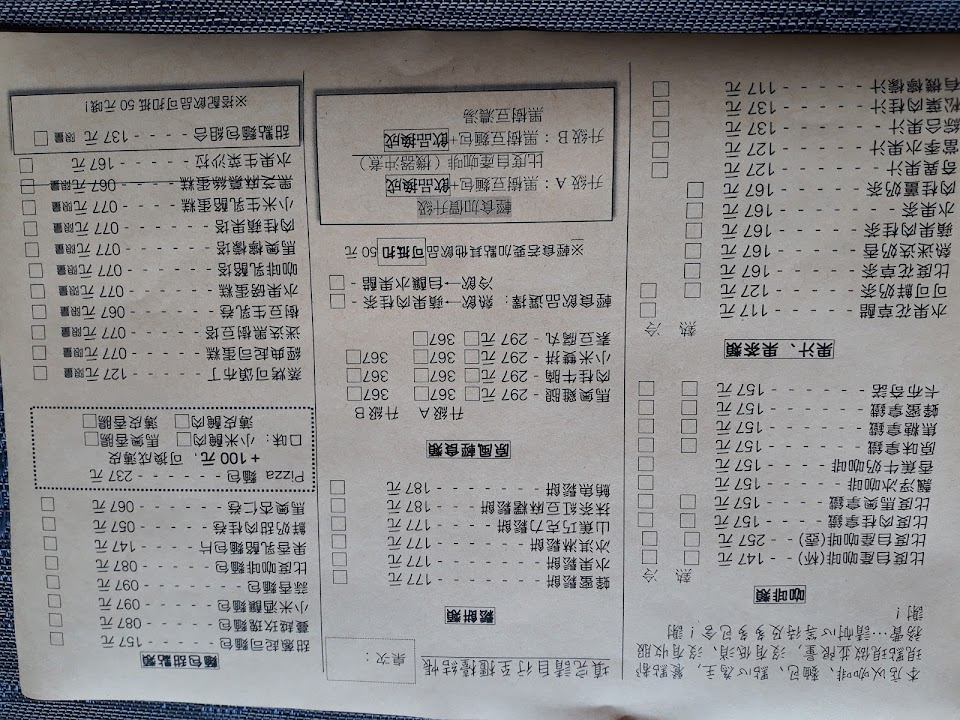 本店以咖啡、麵包、點心為主,餐點都
現點現做並限量,沒有低消、沒有收服
務費…請耐心等待及多多包含!謝
謝!
咖啡類
熱 冷
比度自產咖啡(杯)- - 147 元 □ □
比度自產咖啡(壺)- - 257 元 □ □
比度肉桂拿鐵 - - - - 157 元 □ □
比度馬奧拿鐵 - - - - 157 元 □ □
飄浮冰咖啡 - - - - - 157 元 □
香蕉牛奶咖啡 - - - - 157 元 □
原味拿鐵 - - - - - - 157 元 □ □
焦糖拿鐵 - - - - - - 157 元 □ □
蜂蜜拿鐵 - - - - - - 157 元 □ □
卡布奇諾 - - - - - - 157 元 □ □
果汁、果茶類
熱 冷
水果花草醋 - - - - - 117 元 □
可可鮮奶茶 - - - - - 127 元 □ □
比度花草茶 - - - - - 167 元 □
熱迷迭奶香 - - - - - 167 元 □
蘋果肉桂茶 - - - - - 167 元 □
水果茶 - - - - - - - 167 元 □
肉桂薑奶茶 - - - - - 167 元 □
奇異果汁 - - - - - - 127 元 □
當季水果汁 - - - - - 127 元 □
綜合果汁 - - - - - - 137 元 □
松葉肉桂汁 - - - - - 137 元 □
有機檸檬汁 - - - - - 117 元 □
填完請自行至櫃檯結帳
桌次:
鬆餅類
蜂蜜鬆餅 - - - - - - - 177 元 □
水果鬆餅 - - - - - - - 177 元 □
冰淇淋鬆餅 - - - - - - 177 元 □
山蕉巧克力鬆餅 - - - - 177 元 □
抹茶紅豆麻糬鬆餅 - - - 187 元 □
鮪魚鬆餅 - - - - - - - 187 元 □
原風輕食類
升級 A 升級 B
馬奧雞腿 - 297 元□ 367□ 367□
肉桂牛腩 - 297 元□ 367□ 367□
小米雙拼 - 297 元□ 367□ 367□
素豆腐丸 - 297 元□ 367□
輕食飲品選擇:熱→蘋果肉桂茶 - □
冷飲→自釀水果醋 - □
※輕食若要加點其他飲品可抵扣 50 元
輕食加價升級
升級 A:黑樹豆麵包+飲品換成
比度自產咖啡(機器沖煮)
升級 B:黑樹豆麵包+飲品換成
黑樹豆濃湯
麵包甜點類
甜蔥起司麵包 - - - - 157 元 □
蔓越玫瑰麵包 - - - - 087 元 □
小米酒釀麵包 - - - - 097 元 □
蒜香麵包 - - - - - - 097 元 □
比度咖啡麵包 - - - - 087 元 □
果香乳酪麵包片 - - - 147 元 □
鮮奶甜肉桂卷 - - - - 057 元 □
馬奧杏仁卷 - - - - - 067 元 □
Pizza 麵包 - - - - - 237 元
+100 元,可換成薄皮
口味:小米醃肉□ 馬奧香腸□
薄皮醃肉□ 薄皮香腸□
蒸烤可頌布丁 - - - - 127 元限量 □
經典起司蛋糕 - - - - 077 元限量 □
迷迭黑樹豆塔 - - - - 077 元限量 □
樹豆生乳卷 - - - - - 067 元限量 □
水果磅蛋糕 - - - - - 077 元限量 □
咖啡乳酪塔 - - - - - 077 元限量 □
馬奧檸檬塔 - - - - - 077 元限量 □
肉桂蘋果塔 - - - - - 077 元限量 □
小米生乳酪蛋糕 - - - 077 元限量 □
黑芝麻慕絲蛋糕 - - - 067 元限量 □
水果生菜沙拉 - - - - 167 元 □
甜點麵包組合 - - - - - 137 元 限量 □
※搭配飲品可扣抵 50 元哦!